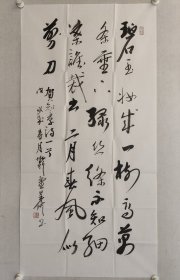 碧玉妆成一树高万
条垂下绿丝绦不知细
叶谁裁出二月春风似
剪刀
贺知章诗一首